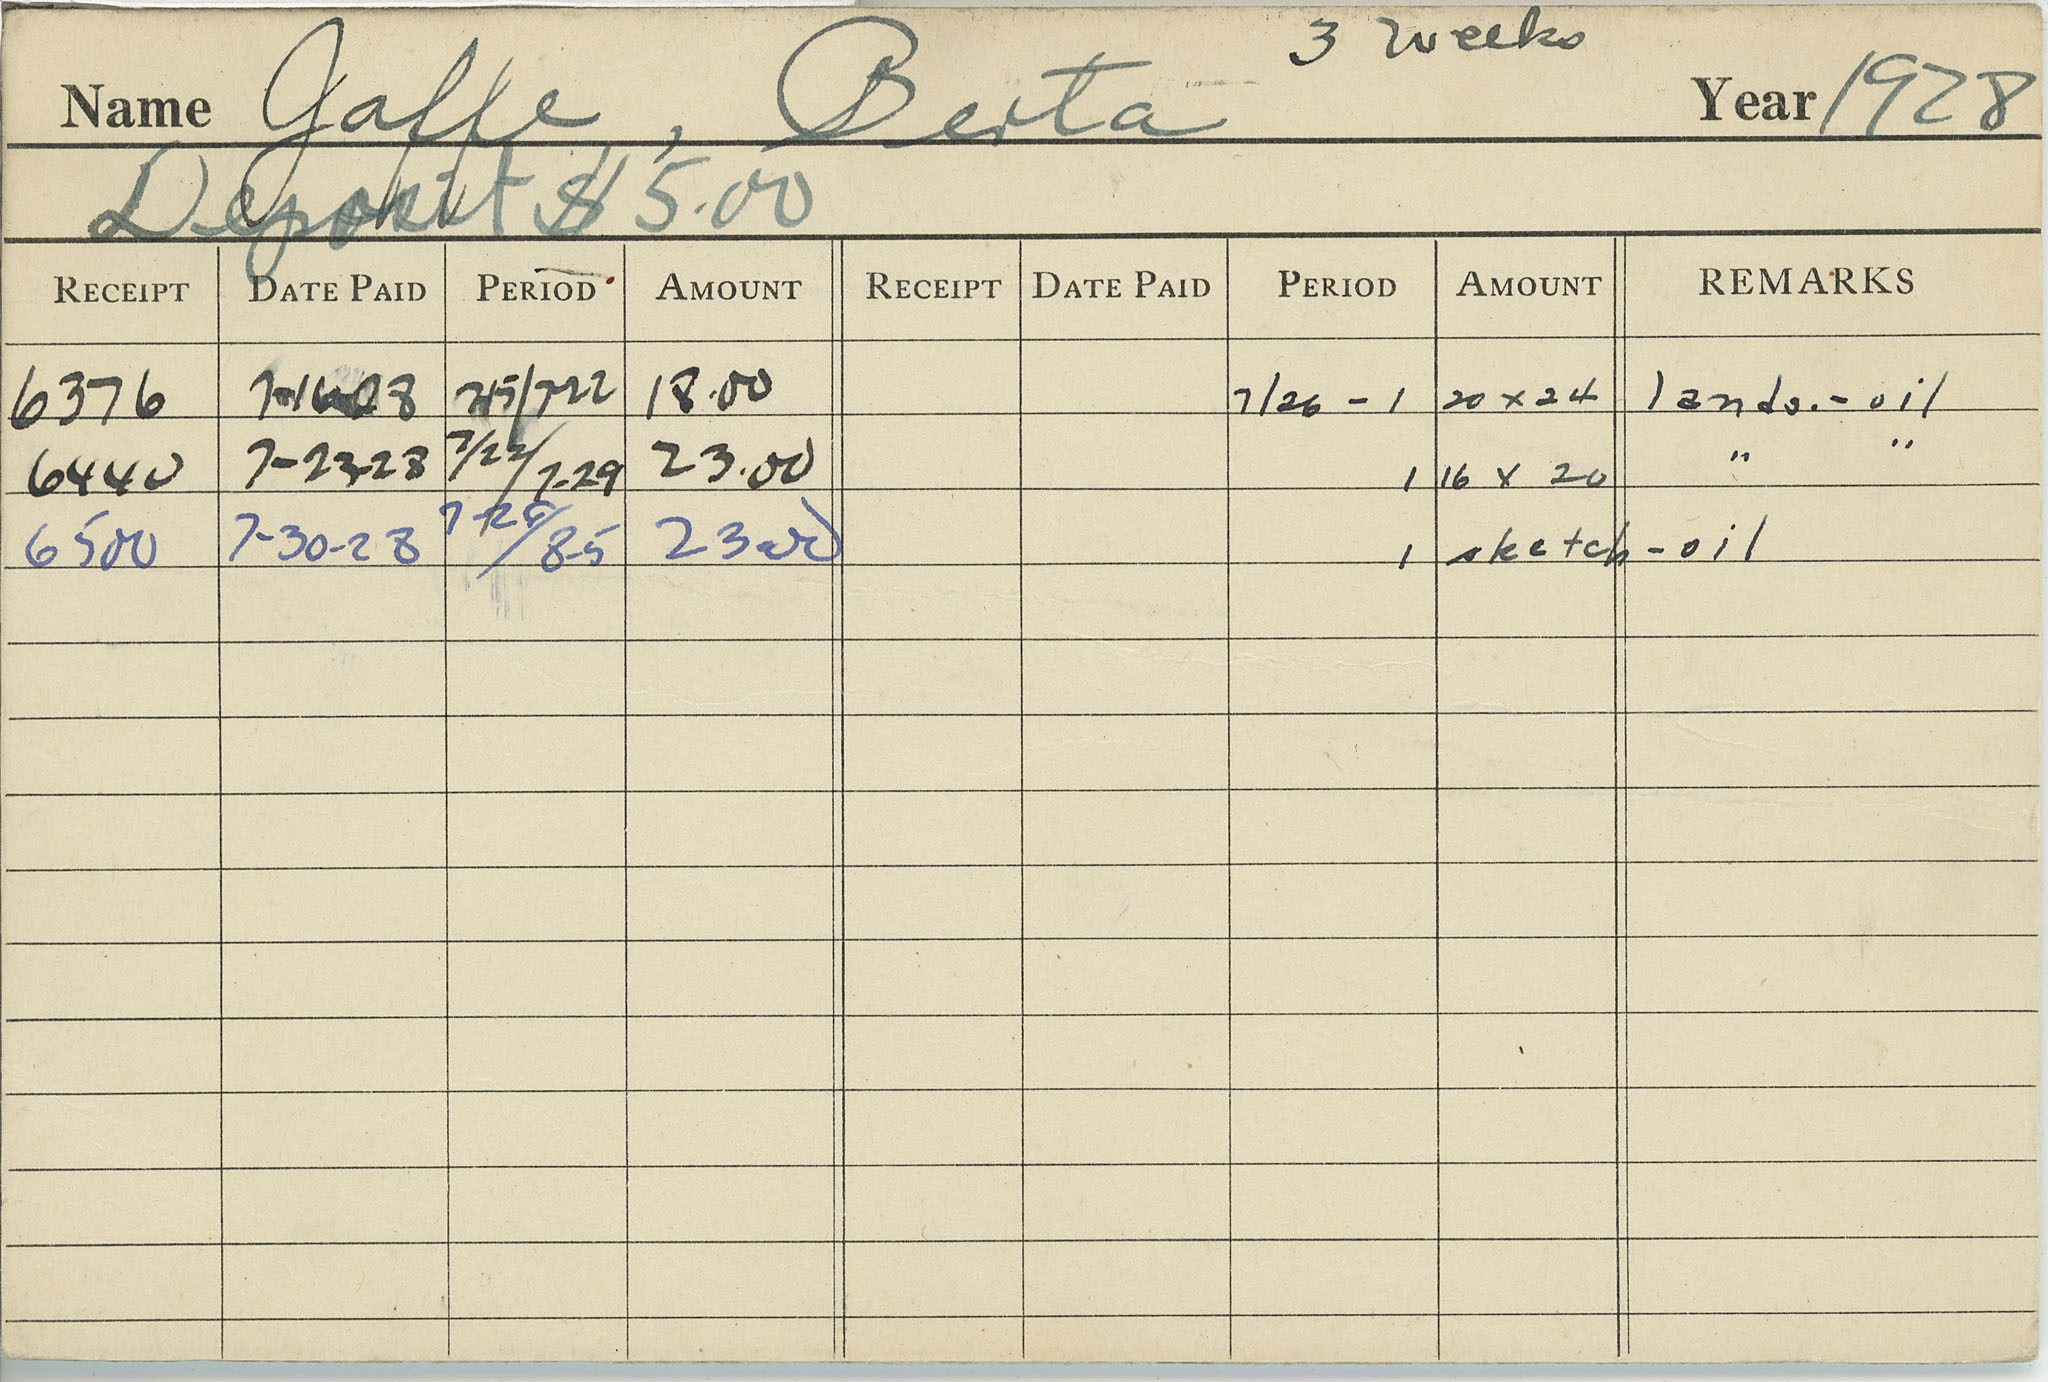 3 weeks
Name Jaffe, Berta Year 1928
Deposit $5.00
RECEIPT DATE PAID PERIOD AMOUNT RECEIPT DATE PAID PERIOD AMOUNT REMARKS
6376 7-16-28 7-15/7-22 18.00 7/26 - 1 20 x 24 lands. - oil
6440 7-23-28 7/22/7-29 23.00 1 16 x 20 " "
6500 7-30-28 /8-5 23.00 1 sketch - oil